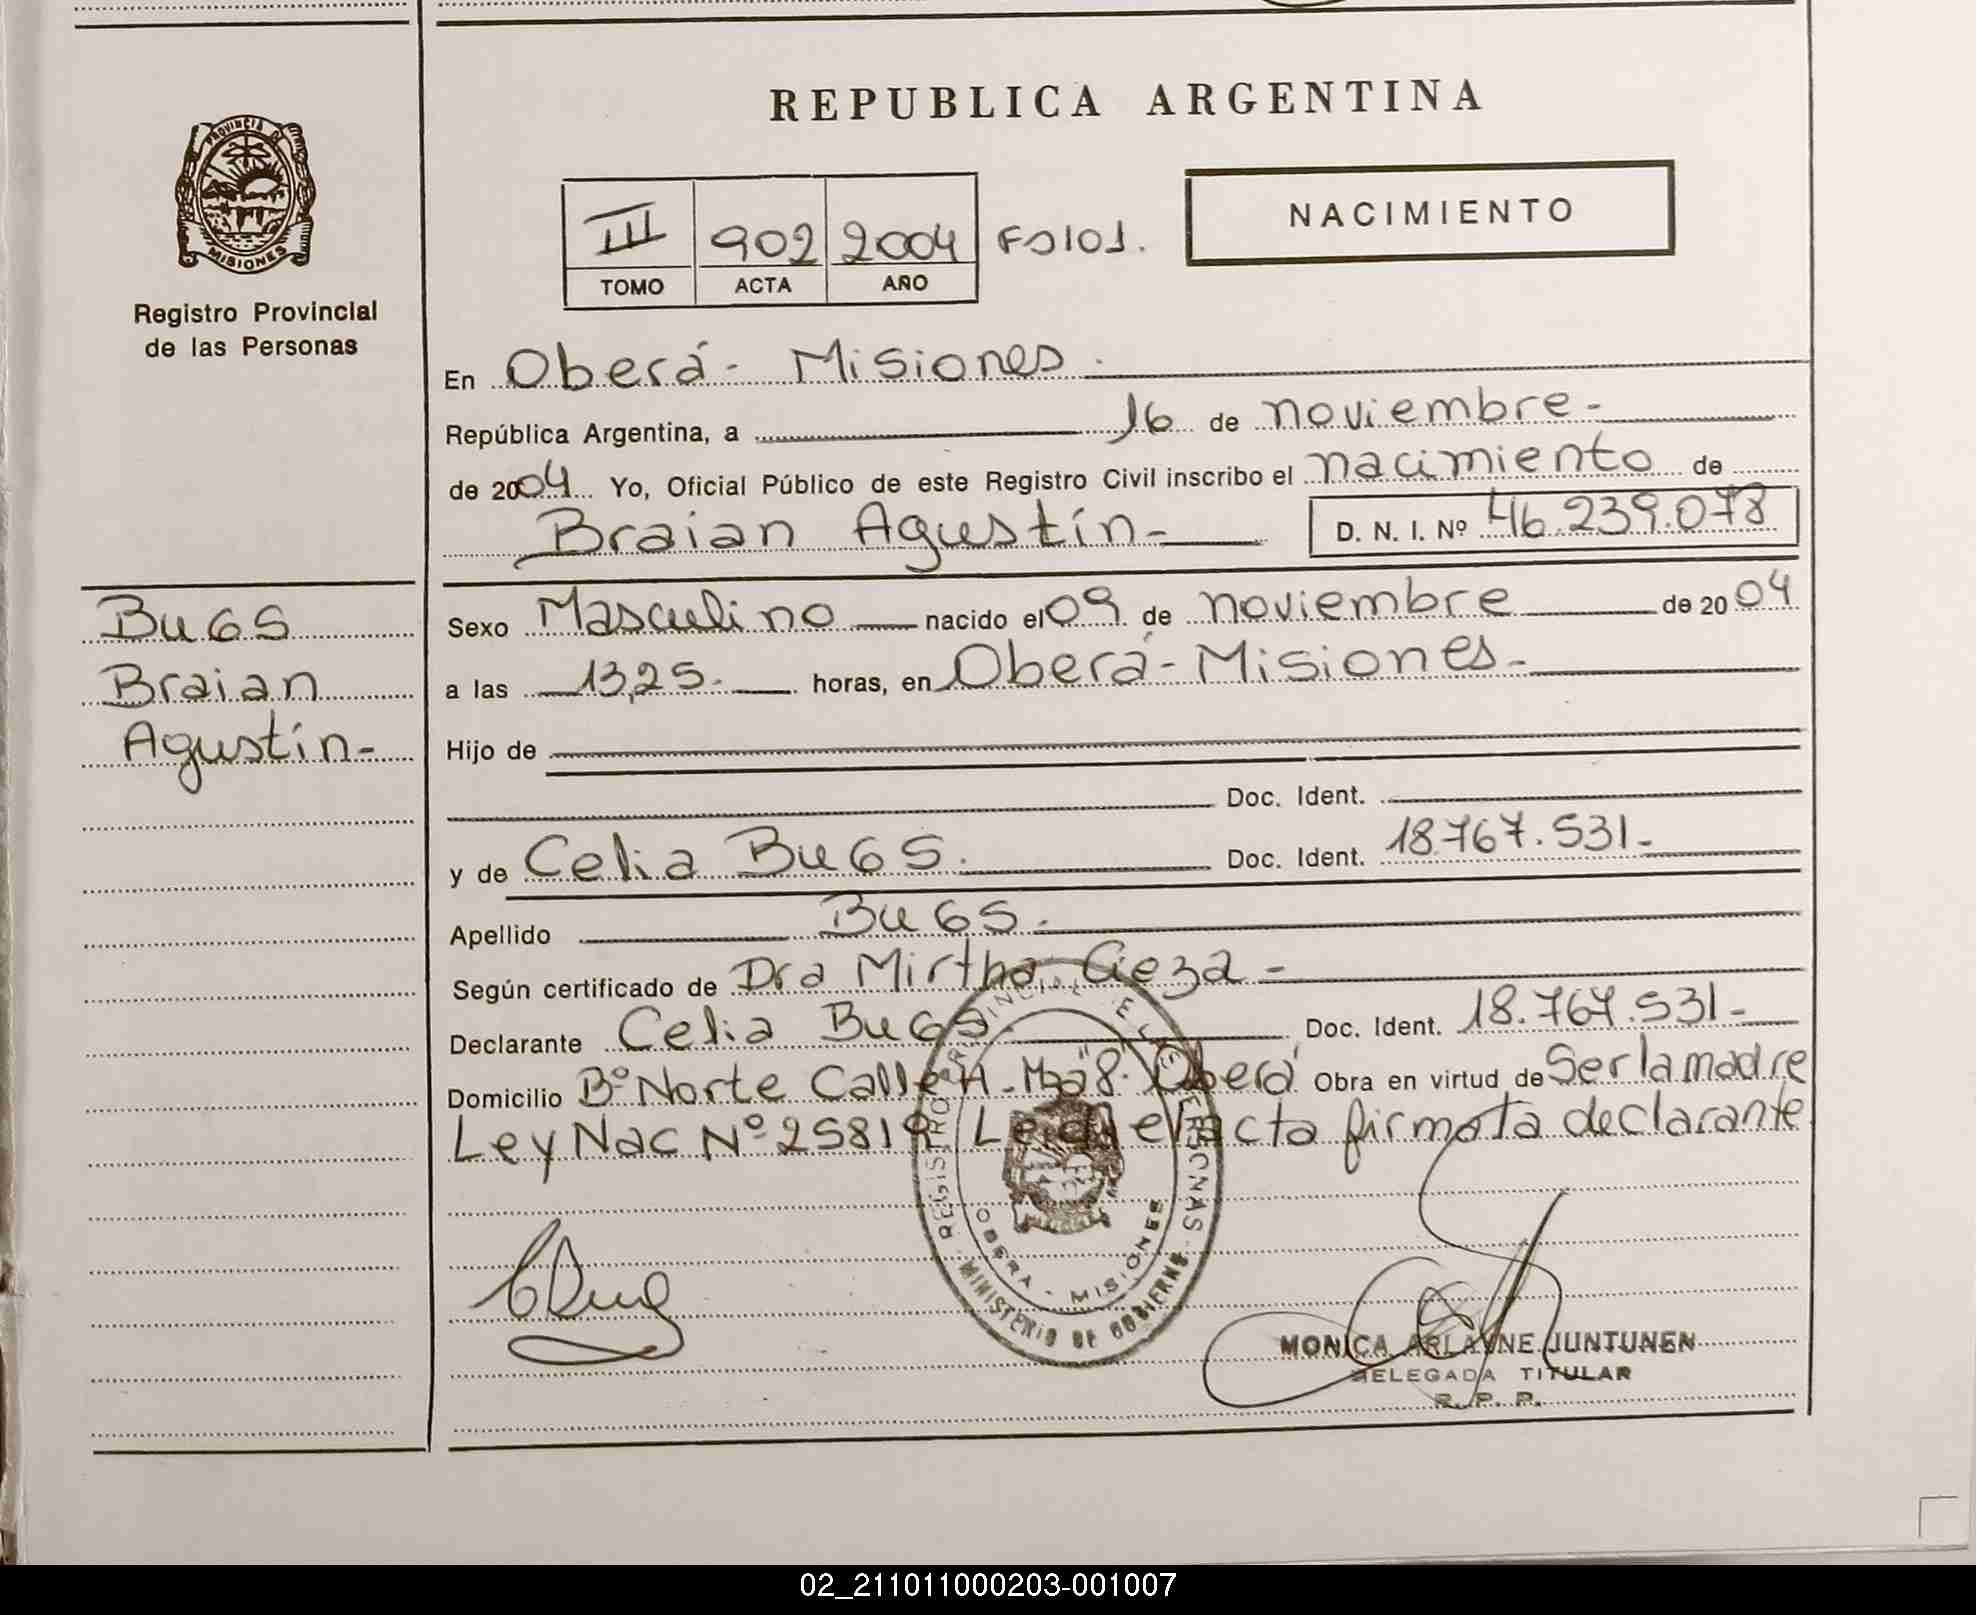 REPUBLICA ARGENTINA
PROVINCIA DE
MISIONES
Registro Provincial
de las Personas
III 902 2004 Fº101.
TOMO ACTA AÑO
NACIMIENTO
En Oberá - Misiones.
República Argentina, a 16 de noviembre-
de 2004 Yo, Oficial Público de este Registro Civil inscribo el nacimiento de
Braian Agustín- D. N. I. Nº 46.239.078
BuGS
Braian
Agustín-
Sexo Masculino nacido el 09 de noviembre de 2004
a las 13,25. horas, en Oberá - Misiones-
Hijo de
Doc. Ident.
y de Celia BuGS. Doc. Ident. 18.767.531-
Apellido BuGS.
Según certificado de Dra Mirtha Cieza-
Declarante Celia BuGS. Doc. Ident. 18.767.531-
Domicilio Bº Norte Calle H. Mza 8. Oberá Obra en virtud de Ser la madre
Ley Nac Nº 25819 Leída el acta firmo la declarante
REGISTRO PROVINCIAL DE LAS PERSONAS
OBERA - MISIONES
MINISTERIO DE GOBIERNO
MONICA ARLAYNE JUNTUNEN
DELEGADA TITULAR
R. P. P.
02_211011000203-001007